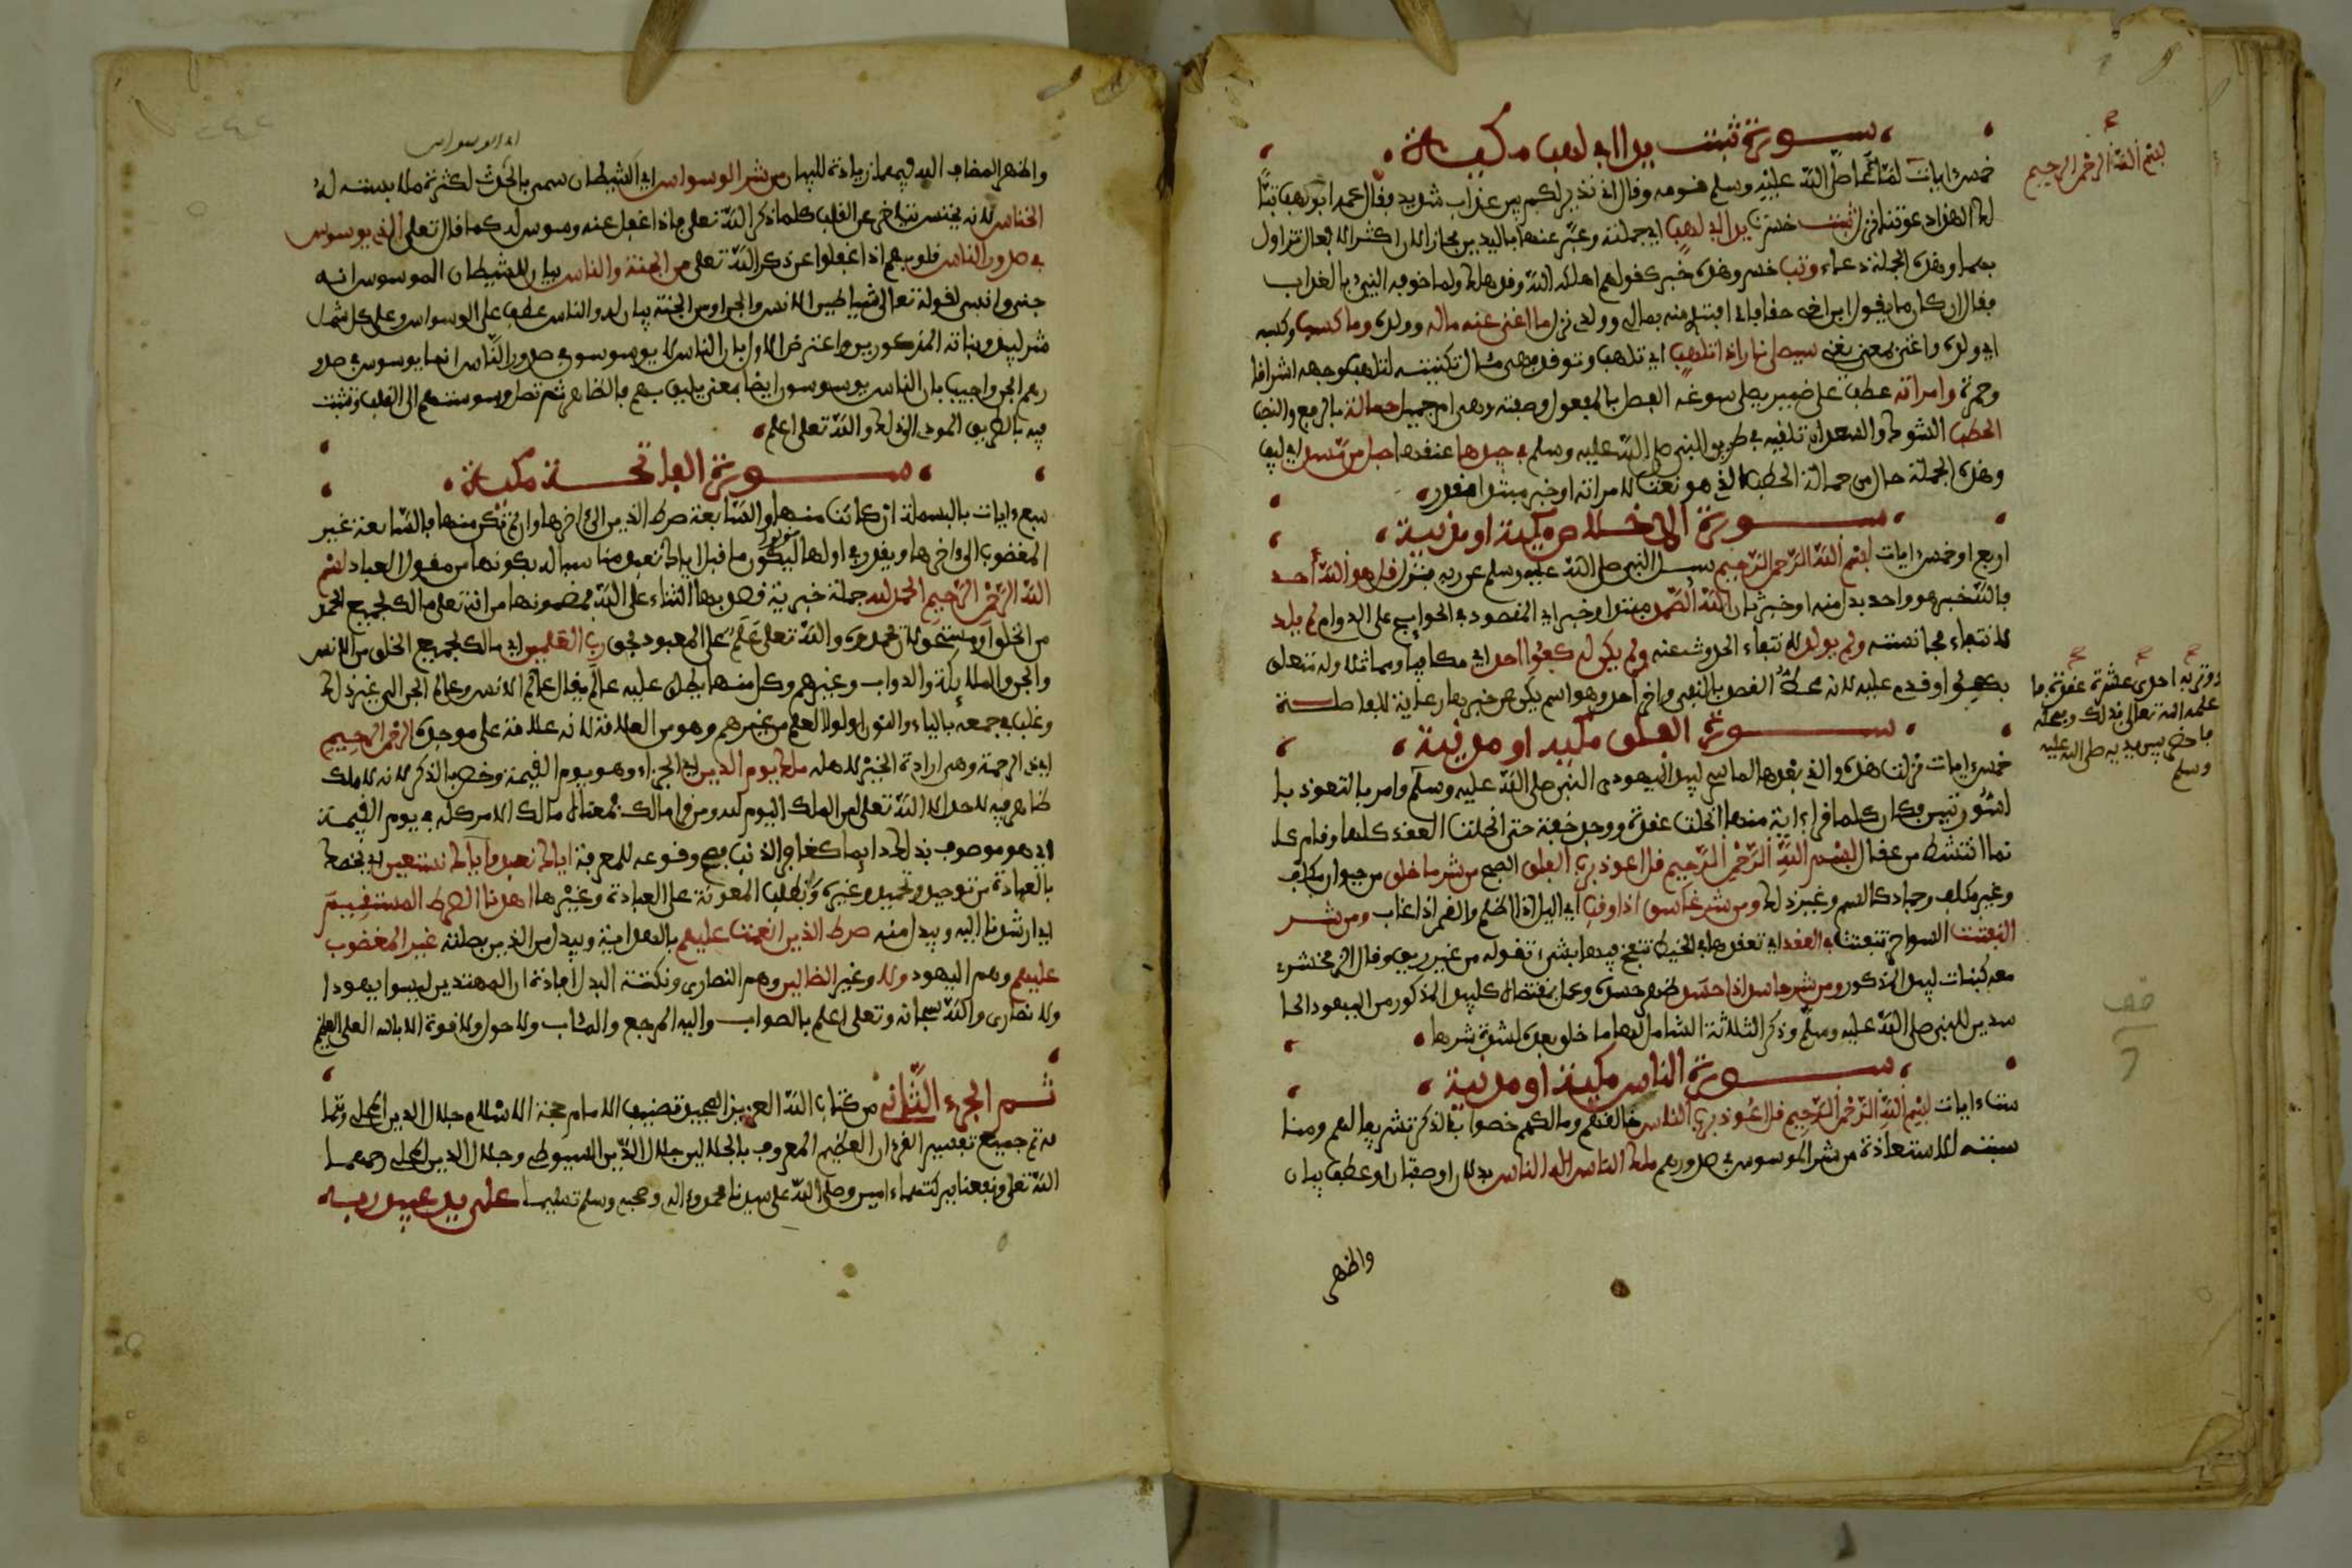 سورة تبت يدا ابي لهب مكية
خمس ءايات لما دعا صلى الله عليه وسلم قومه وقال اني نذير لكم بين عذاب شديد فقال عمه ابو لهب تبا
لك الهذا دعوتنا نزل تبت خسرت يدا ابي لهب اي جملته وعبر عنها باليدين مجازا لان اكثر الافعال تزاول
بهما وهذه الجملة دعاء وتب خسر وهذه خبر كقولهم اهلكه الله وقد هلك ولما خوفه النبيء بالعذاب
فقال ان كان ما يقول ابن اخي حقا فاني افتدي منه بمالي وولدي نزل ما اغنى عنه ماله وولده وما كسب وكسبه
اي ولده واغنى بمعنى يغني سيصلى نارا ذات لهب اي تلهب وتوقد فهي مئال تكنيته لتلهب وجهه اشراقا
وحمرة وامراته عطف على ضمير يصلى سوغه الفصل بالمفعول وصفته وهي ام جميل حمالة بالرفع والنصب
الحطب الشوك والسعدان تلقيه في طريق النبي صلى الله عليه وسلم في جيدها عنقها حبل من مسد اي ليف
وهذه الجملة حال من حمالة الحطب الذي هو نعت لامراته او خبر مبتدا مقدر
سورة الاخلاص مكية او مدنية
اربع او خمس ايات بسم الله الرحمن الرحيم سئل النبي صلى الله عليه وسلم عن ربه فنزل قل هو الله احد
فالله خبر هو واحد بدل منه او خبر ثان الله الصمد مبتدا وخبر اي المقصود في الحوايج على الدوام لم يلد
لانتفاء مجانسته ولم يولد لانتفاء الحدوث عنه ولم يكن له كفؤا احد اي مكافيا ومماثلا وله متعلق
بكفؤا وقدم عليه لانه محط القصد بالنفي واخر احد وهو اسم يكن عن خبرها رعاية للفاصلة
سورة الفلق مكية او مدنية
خمس ءايات نزلت هذه والتي بعدها لما سحر لبيد اليهودي النبي صلى الله عليه وسلم وامر بالتعوذ با
لسورتين فكان كلما قرا ءاية منها انحلت عقدة ووجد خفة حتى انحلت العقد كلها وقام كا
نما انشط من عقال بسم الله الرحمن الرحيم قل اعوذ برب الفلق الصبح من شر ما خلق من حيوان مكلف
وغير مكلف وجماد كالسم وغير ذلك ومن شر غاسق اذا وقب اي الليل اذا اظلم والقمر اذا غاب ومن شر
النفثت السواحر تنفث في العقد اي تعقدها في الخيط تنفخ فيها بشيء تقوله من غير ريق وقال الزمخشري
معه كبنات لبيد المذكور ومن شر حاسد اذا حسد ظهر حسده وعمل بمقتضاه كلبيد المذكور من اليهود الحا
سدين للنبي صلى الله عليه وسلم وذكر الثلاثة الشامل لها ما خلق بعده لشدة شرها
سورة الناس مكية او مدنية
ست ءايات بسم الله الرحمن الرحيم قل اعوذ برب الناس خالقهم ومالكهم خصوا بالذكر تشريفا لهم ومنا
سبته للاستعاذة من شر الموسوس في صدورهم ملك الناس اله الناس بدلان او صفتان او عطف بيان
واظهر
بسم الله الرحمن الرحيم
وتر به احدى عشرة عقدة فا
علمه الله تعالى بذلك وبمحله
فاحضر بين يديه صلى الله عليه
وسلم
قف
اي الوسواس
واظهر المضاف اليه فيهما زيادة للبيان من شر الوسواس اي الشيطان سمي بالحدث لكثرة ملابسته له
الخناس لانه يخنس يتاخر عن القلب كلما ذكر الله تعلى فاذا غفل عنه وسوس له كما قال تعلى الذي يوسوس
في صدور الناس قلوبهم اذا غفلوا عن ذكر الله تعلى من الجنة والناس بيان للشيطان الموسوس انه
جني وانسي لقوله تعالى شياطين الانس والجن او من الجنة بيان له والناس عطف على الوسواس وعلى كل شمل
شر لبيد وبناته المذكورين واعترض الاول بان الناس لا يوسوسو في صدور الناس انما يوسوس في صدو
رهم الجن واجيب بان الناس يوسوسون ايضا بمعنى يليق بهم بالظاهر ثم تصل وسوستهم الى القلب وتثبت
فيه بالطريق المودي الى ذلك والله تعلى اعلم
سورة الفاتحة مكية
سبع ءايات بالبسملة ان كانت منها والسابعة صرط الذين الى اخرها وان لم تكن منها فالسابعة غير
المغضوب الى اخرها ويقدر في اولها قولوا ليكون ما قبل اياك نعبد مناسبا له بكونها من مقول العباد بسم
الله الرحمن الرحيم الحمد لله جملة خبرية قصد بها الثناء على الله بمضمونها من انه تعلى مالك لجميع الحمد
من الخلق او مستحق لان يحمدوه والله تعلى علم على المعبود بحق رب العلمين اي مالك لجميع الخلق من الانس
والجن والملايكة والدواب وغيرهم وكل منها يطلق عليه عالم يقال عالم الانس وعالم الجن الى غير ذلك
وغلب في جمعه بالياء والنون اولوا العلم من غيرهم وهو من العلامة لانه علامة على موجده الرحمن الرحيم
اي ذي الرحمة وهي ارادة الخير لاهله ملك يوم الدين اي الجزاء وهو يوم القيمة وخص بالذكر لانه لا ملك
ظاهر فيه لاحد الا لله تعلى لمن الملك اليوم لله ومن قرا مالك فمعناه مالك الامر كله في يوم القيمة
اي هو موصوف بذلك دايما كغافر الذنب فصح وقوعه للمعرفة اياك نعبد واياك نستعين اي نخصك
بالعبادة من توحيد وتحميد وغيره ونطلب المعونة على العبادة وغيرها اهدنا الصرط المستقيم
اي ارشدنا اليه ويبدل منه صرط الذين انعمت عليهم بالهداية ويبدل من الذين بصلته غير المغضوب
عليهم وهم اليهود ولا وغير الضالين وهم النصارى ونكتة البدل افادة ان المهتدين ليسوا يهودا
ولا نصارى والله سبحانه وتعلى اعلم بالصواب واليه المرجع والمئاب ولا حول ولا قوة الا بالله العلي العظيم
تم الجزء الثاني من كتاب الله العزيز المجيد تصنيف الامام حجة الاسلام جلال الدين المحلي وتما
مه تم جميع تفسير القرءان العظيم المعروف بالجلالين جلال الدين السيوطي وجلال الدين المحلي رحمهما
الله تعلى ونفعنا ببركتهماء امين وصلى الله على سيدنا محمد وءاله وصحبه وسلم تسليما على يد عبيد ربه